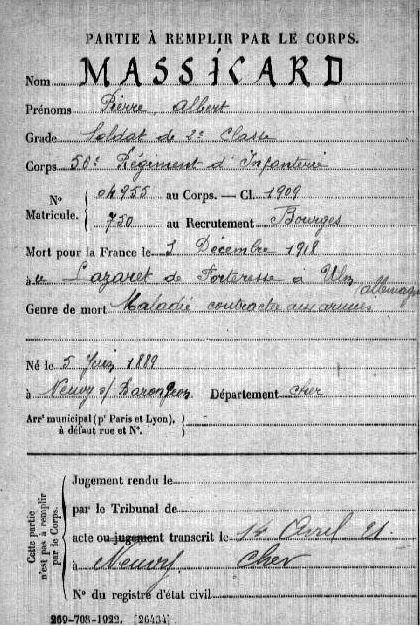 PARTIE À REMPLIR PAR LE CORPS.
Nom MASSICARD
Prénoms Pierre Albert
Grade Soldat de 2e Classe
Corps 56e Régiment d'Infanterie
N° Matricule. { 04955 au Corps. — Cl. 1909
750 au Recrutement Bourges
Mort pour la France le 1 Décembre 1918
à Lazaret de Forteresse à Ulm (Allemagne
Genre de mort Maladie contractée aux armées
Né le 5 Juin 1889
à Neuvy s/ Barangeon Département Cher
Arrt municipal (pr Paris et Lyon), à défaut rue et N°. }
Cette partie n'est pas à remplir par le Corps.
Jugement rendu le
par le Tribunal de
acte ou jugement transcrit le 14 Avril 21
à Neuvy Cher
N° du registre d'état civil
269-708-1922. [26434]